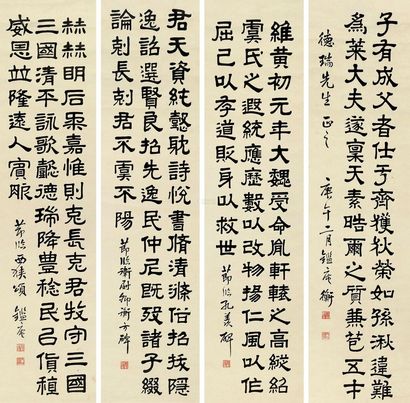 子有成父者仕于齊獲狄榮如孫湫違難
爲萊大夫遂稟天素晧爾之質兼苞五才
德瑞先生 正之 庚午二月 鑑庵
維黃初元年大魏受命胤軒轅之高縱紹
虞氏之遐統應歷數以改物揚仁風以作
屈己以存道貶身以救世 節臨孔羨碑
君天資純懿耽詩悅書脩清滌俗招拔隱
逸謟選賢良招先逸民仲尼既歿諸子綴
論剋長剋君不虞不陽 節臨衛尉卿衡方碑
赫赫明后柔嘉惟則克長克君牧守三國
三國清平詠歌懿德瑞降豐稔民㠯貨稙
威恩竝隆遠人賓服 節臨西狹頌 鑑庵